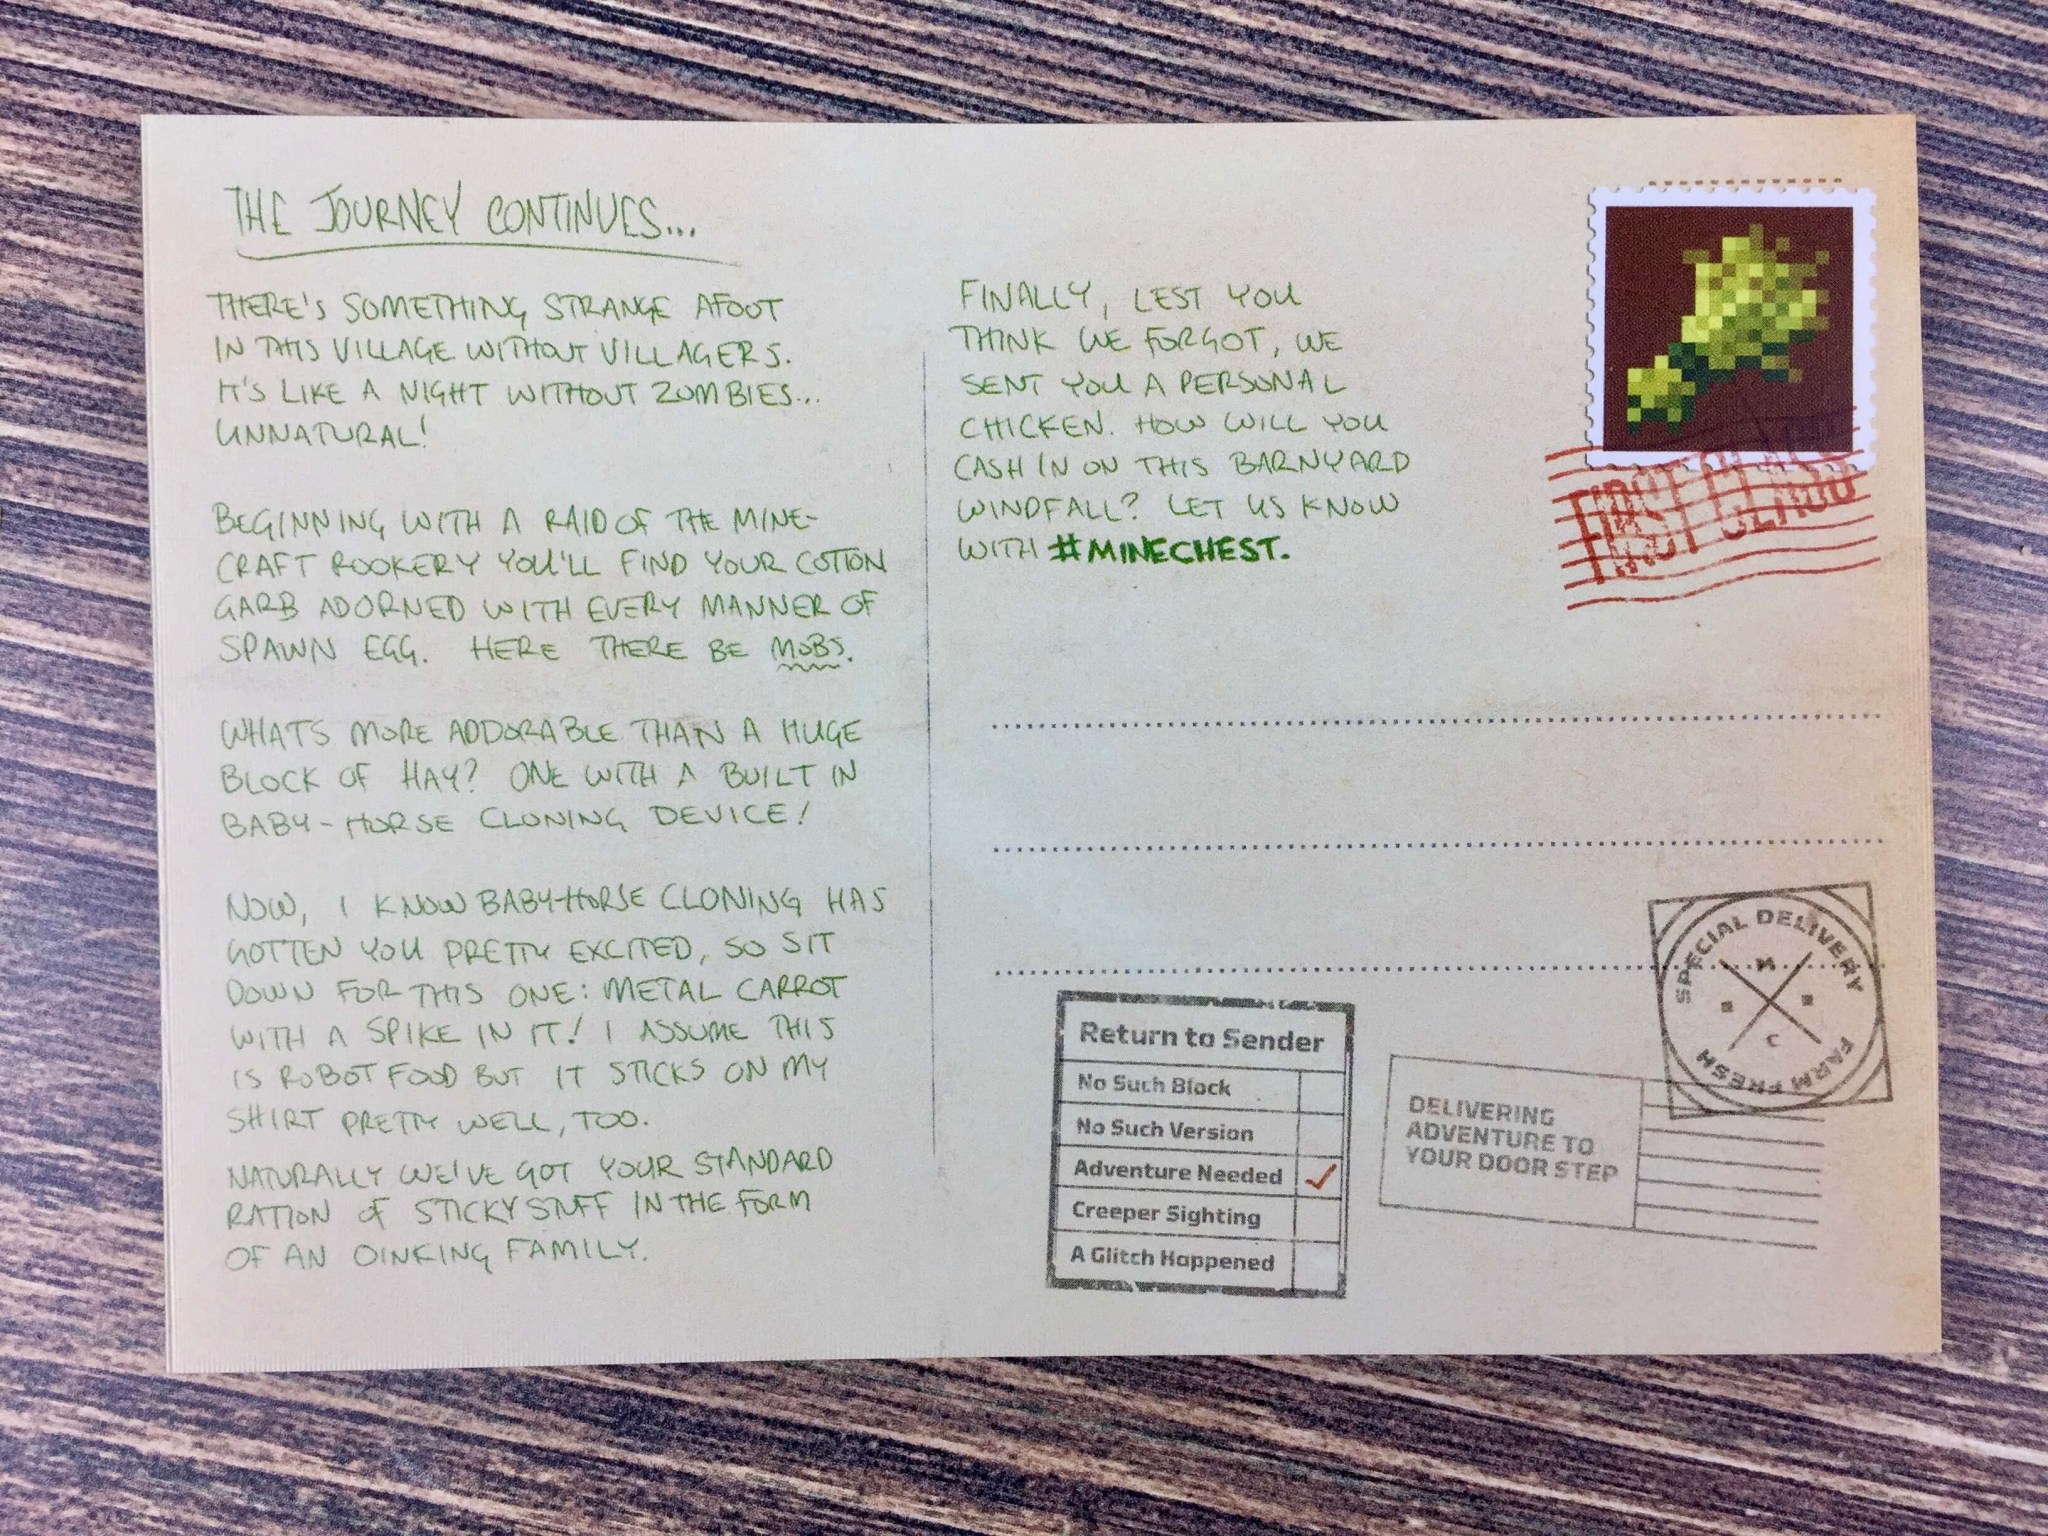 THE JOURNEY CONTINUES...
THERE'S SOMETHING STRANGE AFOOT
IN THIS VILLAGE WITHOUT VILLAGERS.
IT'S LIKE A NIGHT WITHOUT ZOMBIES...
UNNATURAL!
BEGINNING WITH A RAID OF THE MINE-
CRAFT ROOKERY YOU'LL FIND YOUR COTTON
GARB ADORNED WITH EVERY MANNER OF
SPAWN EGG. HERE THERE BE MOBS.
WHATS MORE ADDORABLE THAN A HUGE
BLOCK OF HAY? ONE WITH A BUILT IN
BABY-HORSE CLONING DEVICE!
NOW, I KNOW BABY-HORSE CLONING HAS
GOTTEN YOU PRETTY EXCITED, SO SIT
DOWN FOR THIS ONE: METAL CARROT
WITH A SPIKE IN IT! I ASSUME THIS
IS ROBOT FOOD BUT IT STICKS ON MY
SHIRT PRETTY WELL, TOO.
NATURALLY WE'VE GOT YOUR STANDARD
RATION OF STICKY STUFF IN THE FORM
OF AN OINKING FAMILY.
FINALLY, LEST YOU
THINK WE FORGOT, WE
SENT YOU A PERSONAL
CHICKEN. HOW WILL YOU
CASH IN ON THIS BARNYARD
WINDFALL? LET US KNOW
WITH #MINECHEST.
FIRST CLASS
Return to Sender
No Such Block
No Such Version
Adventure Needed ✓
Creeper Sighting
A Glitch Happened
DELIVERING
ADVENTURE TO
YOUR DOOR STEP
SPECIAL DELIVERY
M
C
FARM FRESH